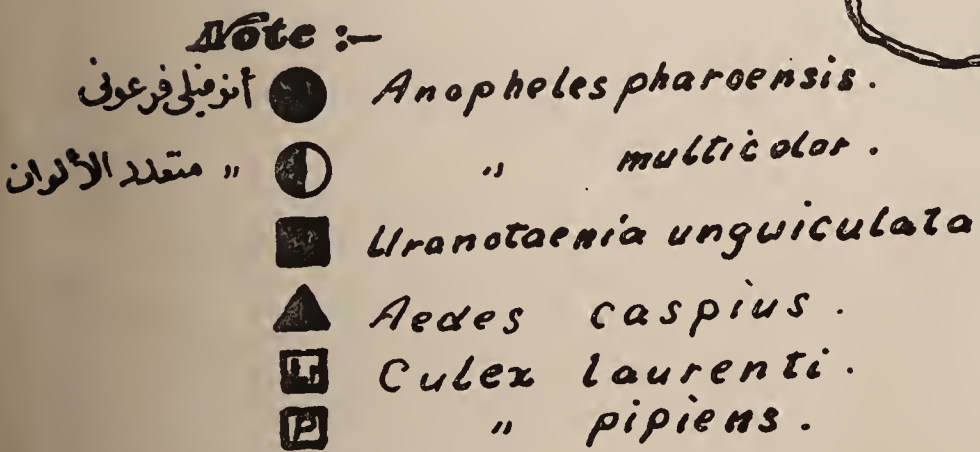 Note :-
أنوفيلى فرعونى Anopheles pharoensis.
〃 متعدد الألوان 〃 multicolor.
Uranotaenia unguiculata
Aedes caspius.
Lr Culex laurenti.
P 〃 pipiens.